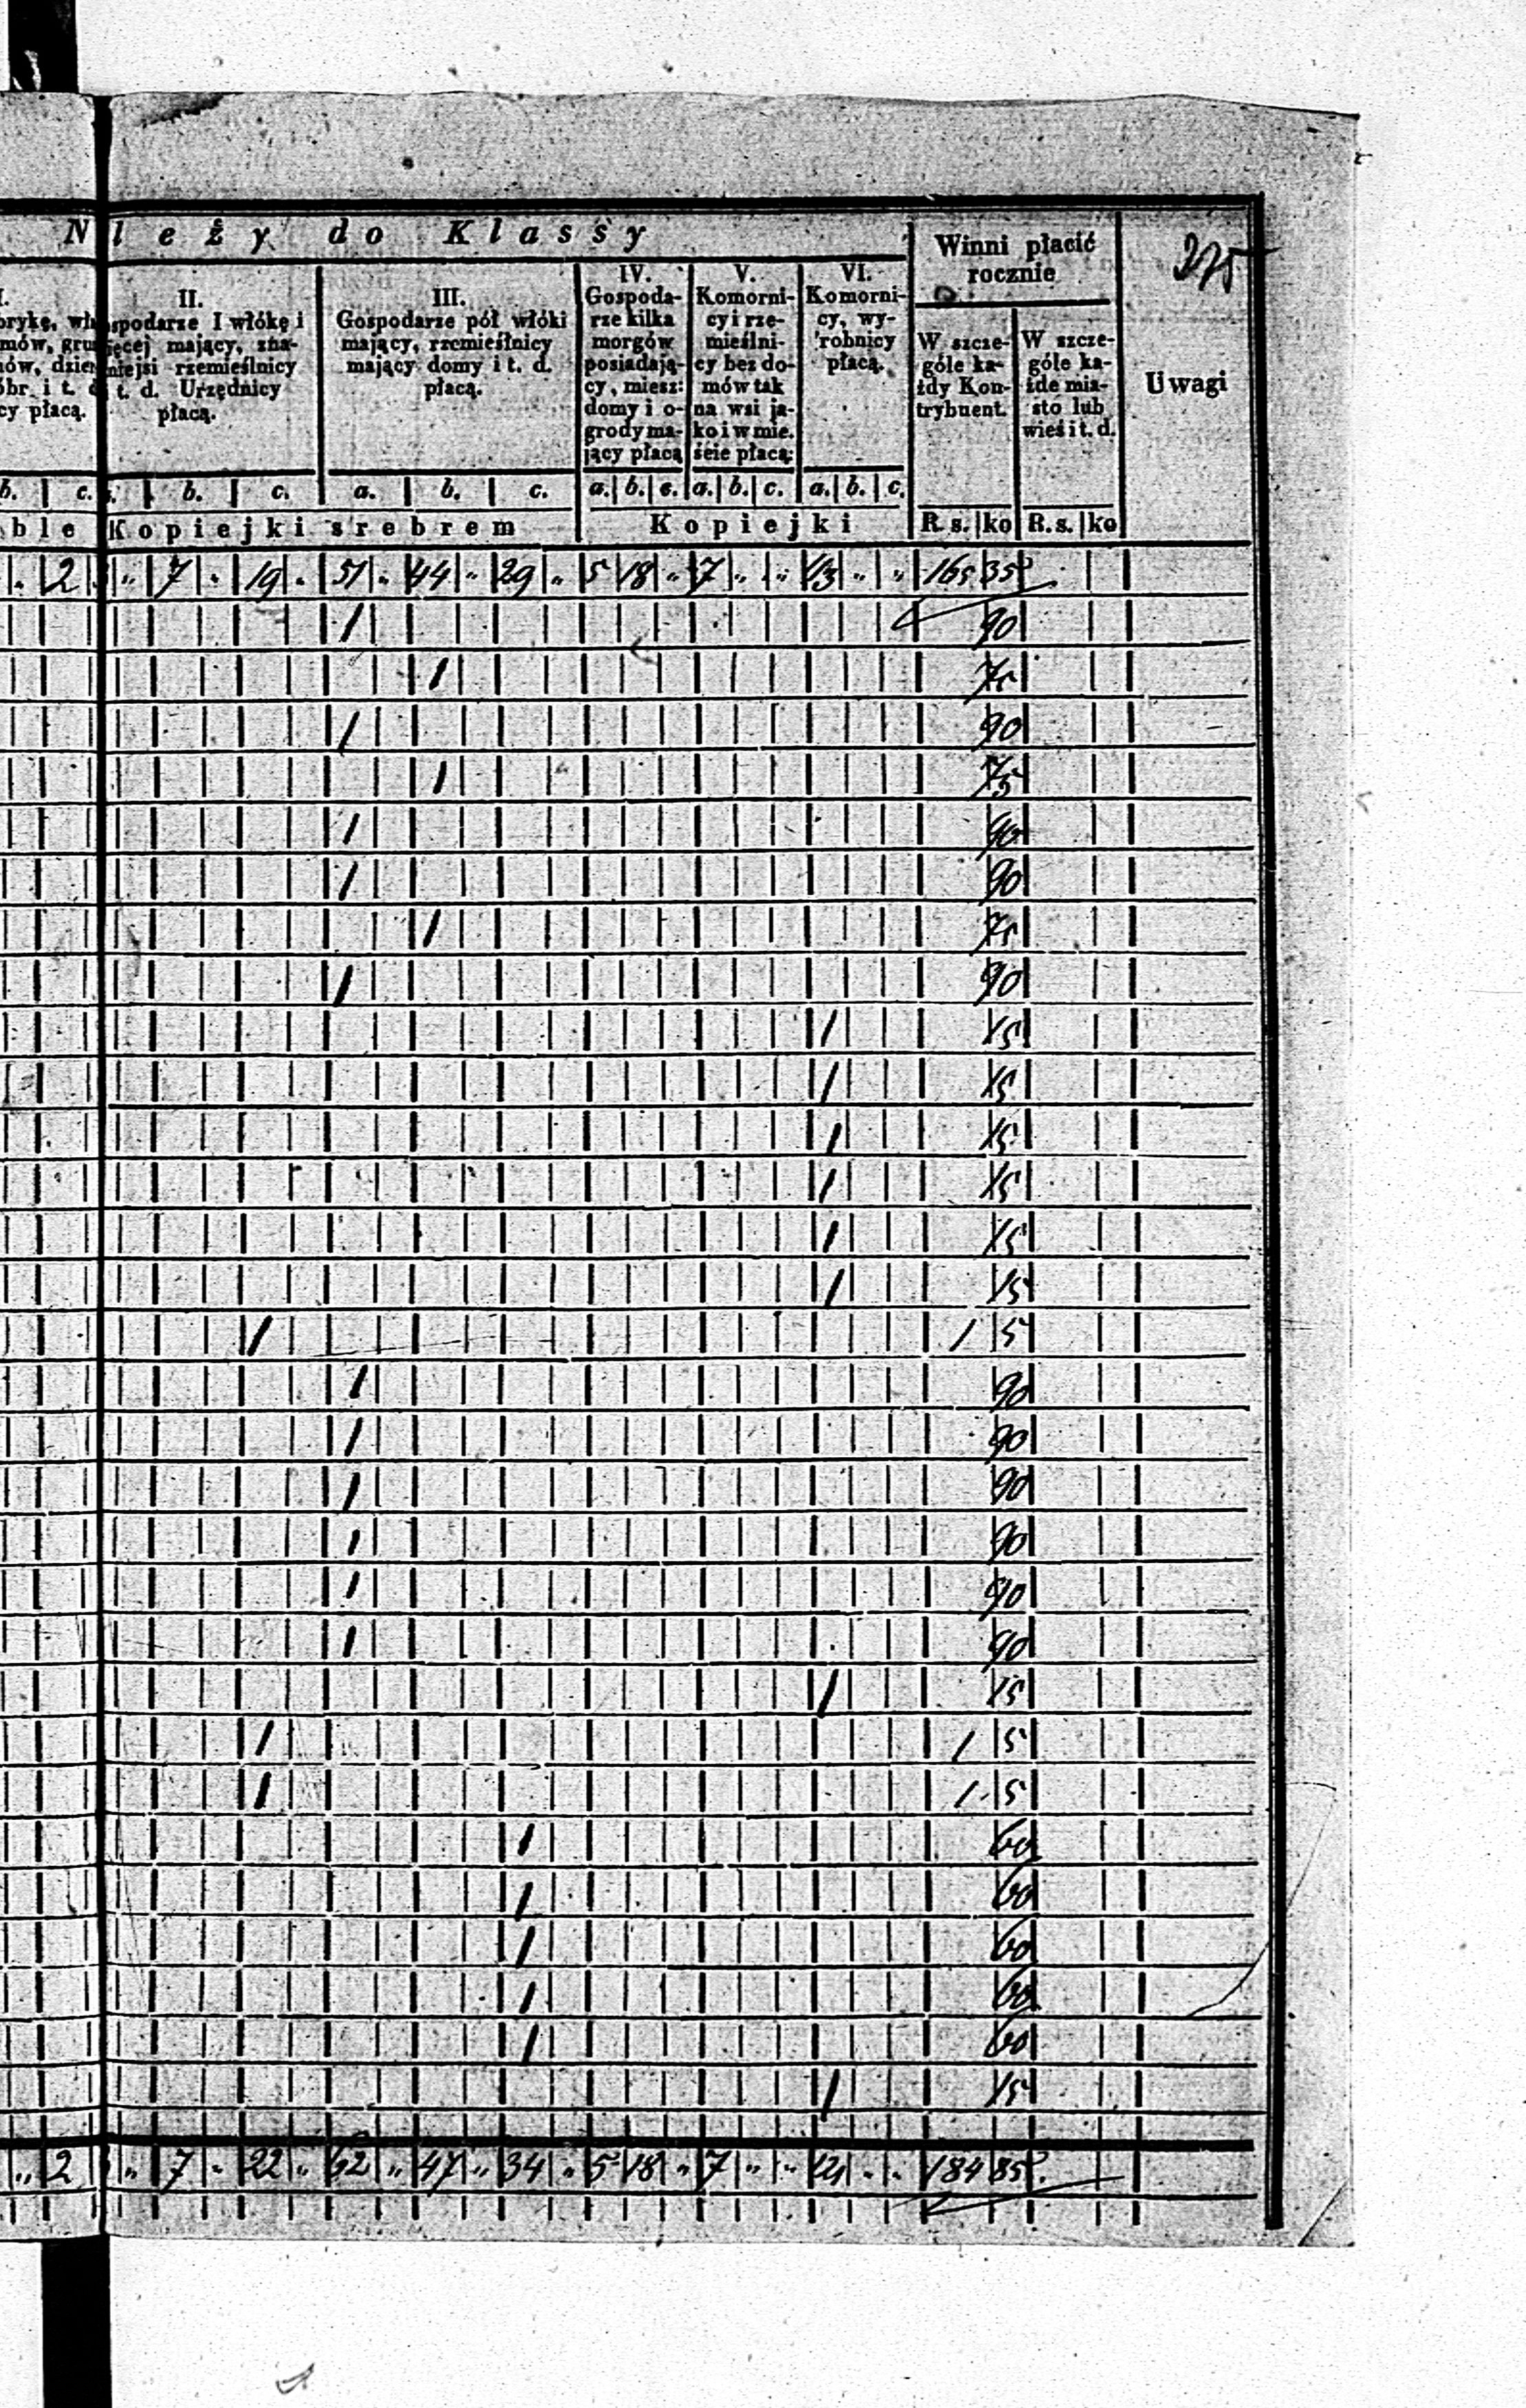 N leży do Klassy
Winni płacić
rocznie
275
II.
Gospodarze I włókę i
więcej mający, zna-
mniejsi rzemieślnicy
i t. d. Urzędnicy
płacą.
III.
Gospodarze pół włóki
mający, rzemieślnicy
mający domy i t. d.
płacą.
IV.
Gospoda-
rze kilka
morgów
posiadają-
cy, miesz:
domy i o-
grody ma-
jący płacą
V.
Komorni-
cy i rze-
mieślni-
cy bez do-
mów tak
na wsi ja-
ko i w mie.
ście płacą:
VI.
Komorni-
cy, wy-
robnicy
płacą.
W szcze-
góle ka-
żdy Kon-
trybuent.
W szcze-
góle ka-
żde mia-
sto lub
wieś i t. d.
Uwagi
b. c. b. c. a. b. c. a. b. c. a. b. c. a. b. c.
ble Kopiejki srebrem Kopiejki R. s. ko R. s. ko
„ 2 „ 7 „ 19 „ 51 „ 44 „ 29 „ 5 18 „ 7 „ „ „ 13 „ „ 165 35
1 90
1 75
1 90
1 75
1 90
1 90
1 75
1 90
1 15
1 15
1 15
1 15
1 15
1 15
1 1 5
1 90
1 90
1 90
1 90
1 90
1 90
1 15
1 1 5
1 1 5
1 60
1 60
1 60
1 60
1 60
1 15
„ 2 „ 7 „ 22 „ 62 „ 47 „ 34 „ 5 18 „ 7 „ „ „ 21 „ „ 184 85